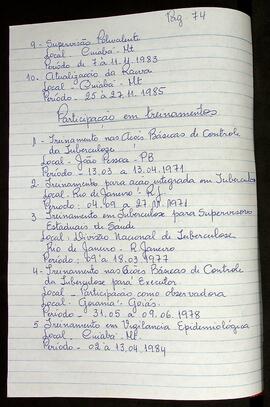 Pág 74
9 - Supervisão Polivalente
Local - Cuiabá - Mt
Período de 7 à 11.11.1983
10. Atualização da Raiva
Local - Cuiabá - Mt
Período - 25 à 27.11.1985
Participação em treinamentos
1 - Treinamento nas Ações Básicas de Controle
da Tuberculose
Local - João Pessoa - PB
Período - 13.03 à 13.04.1971
2 - Treinamento para ação integrada em Tuberculose
Local - Rio de Janeiro - RJ
Período : 04.09 a 27.11.1971
3 Treinamento em Tuberculose para Supervisores
Estaduais de Saúde
Local : Divisão Nacional de Tuberculose
Rio de Janeiro - R. Janeiro
Período : 09 à 18.03 1977
4 - Treinamento nas Ações Básicas de Controle
da Tuberculose para Executor
Local - Participação como observadora
Local - Goiania - Goiás.
Período - 31.05 a 09.06.1978
5 Treinamento em Vigilância Epidemiológica
Local : Cuiabá - Mt.
Período - 02 à 13.04.1984